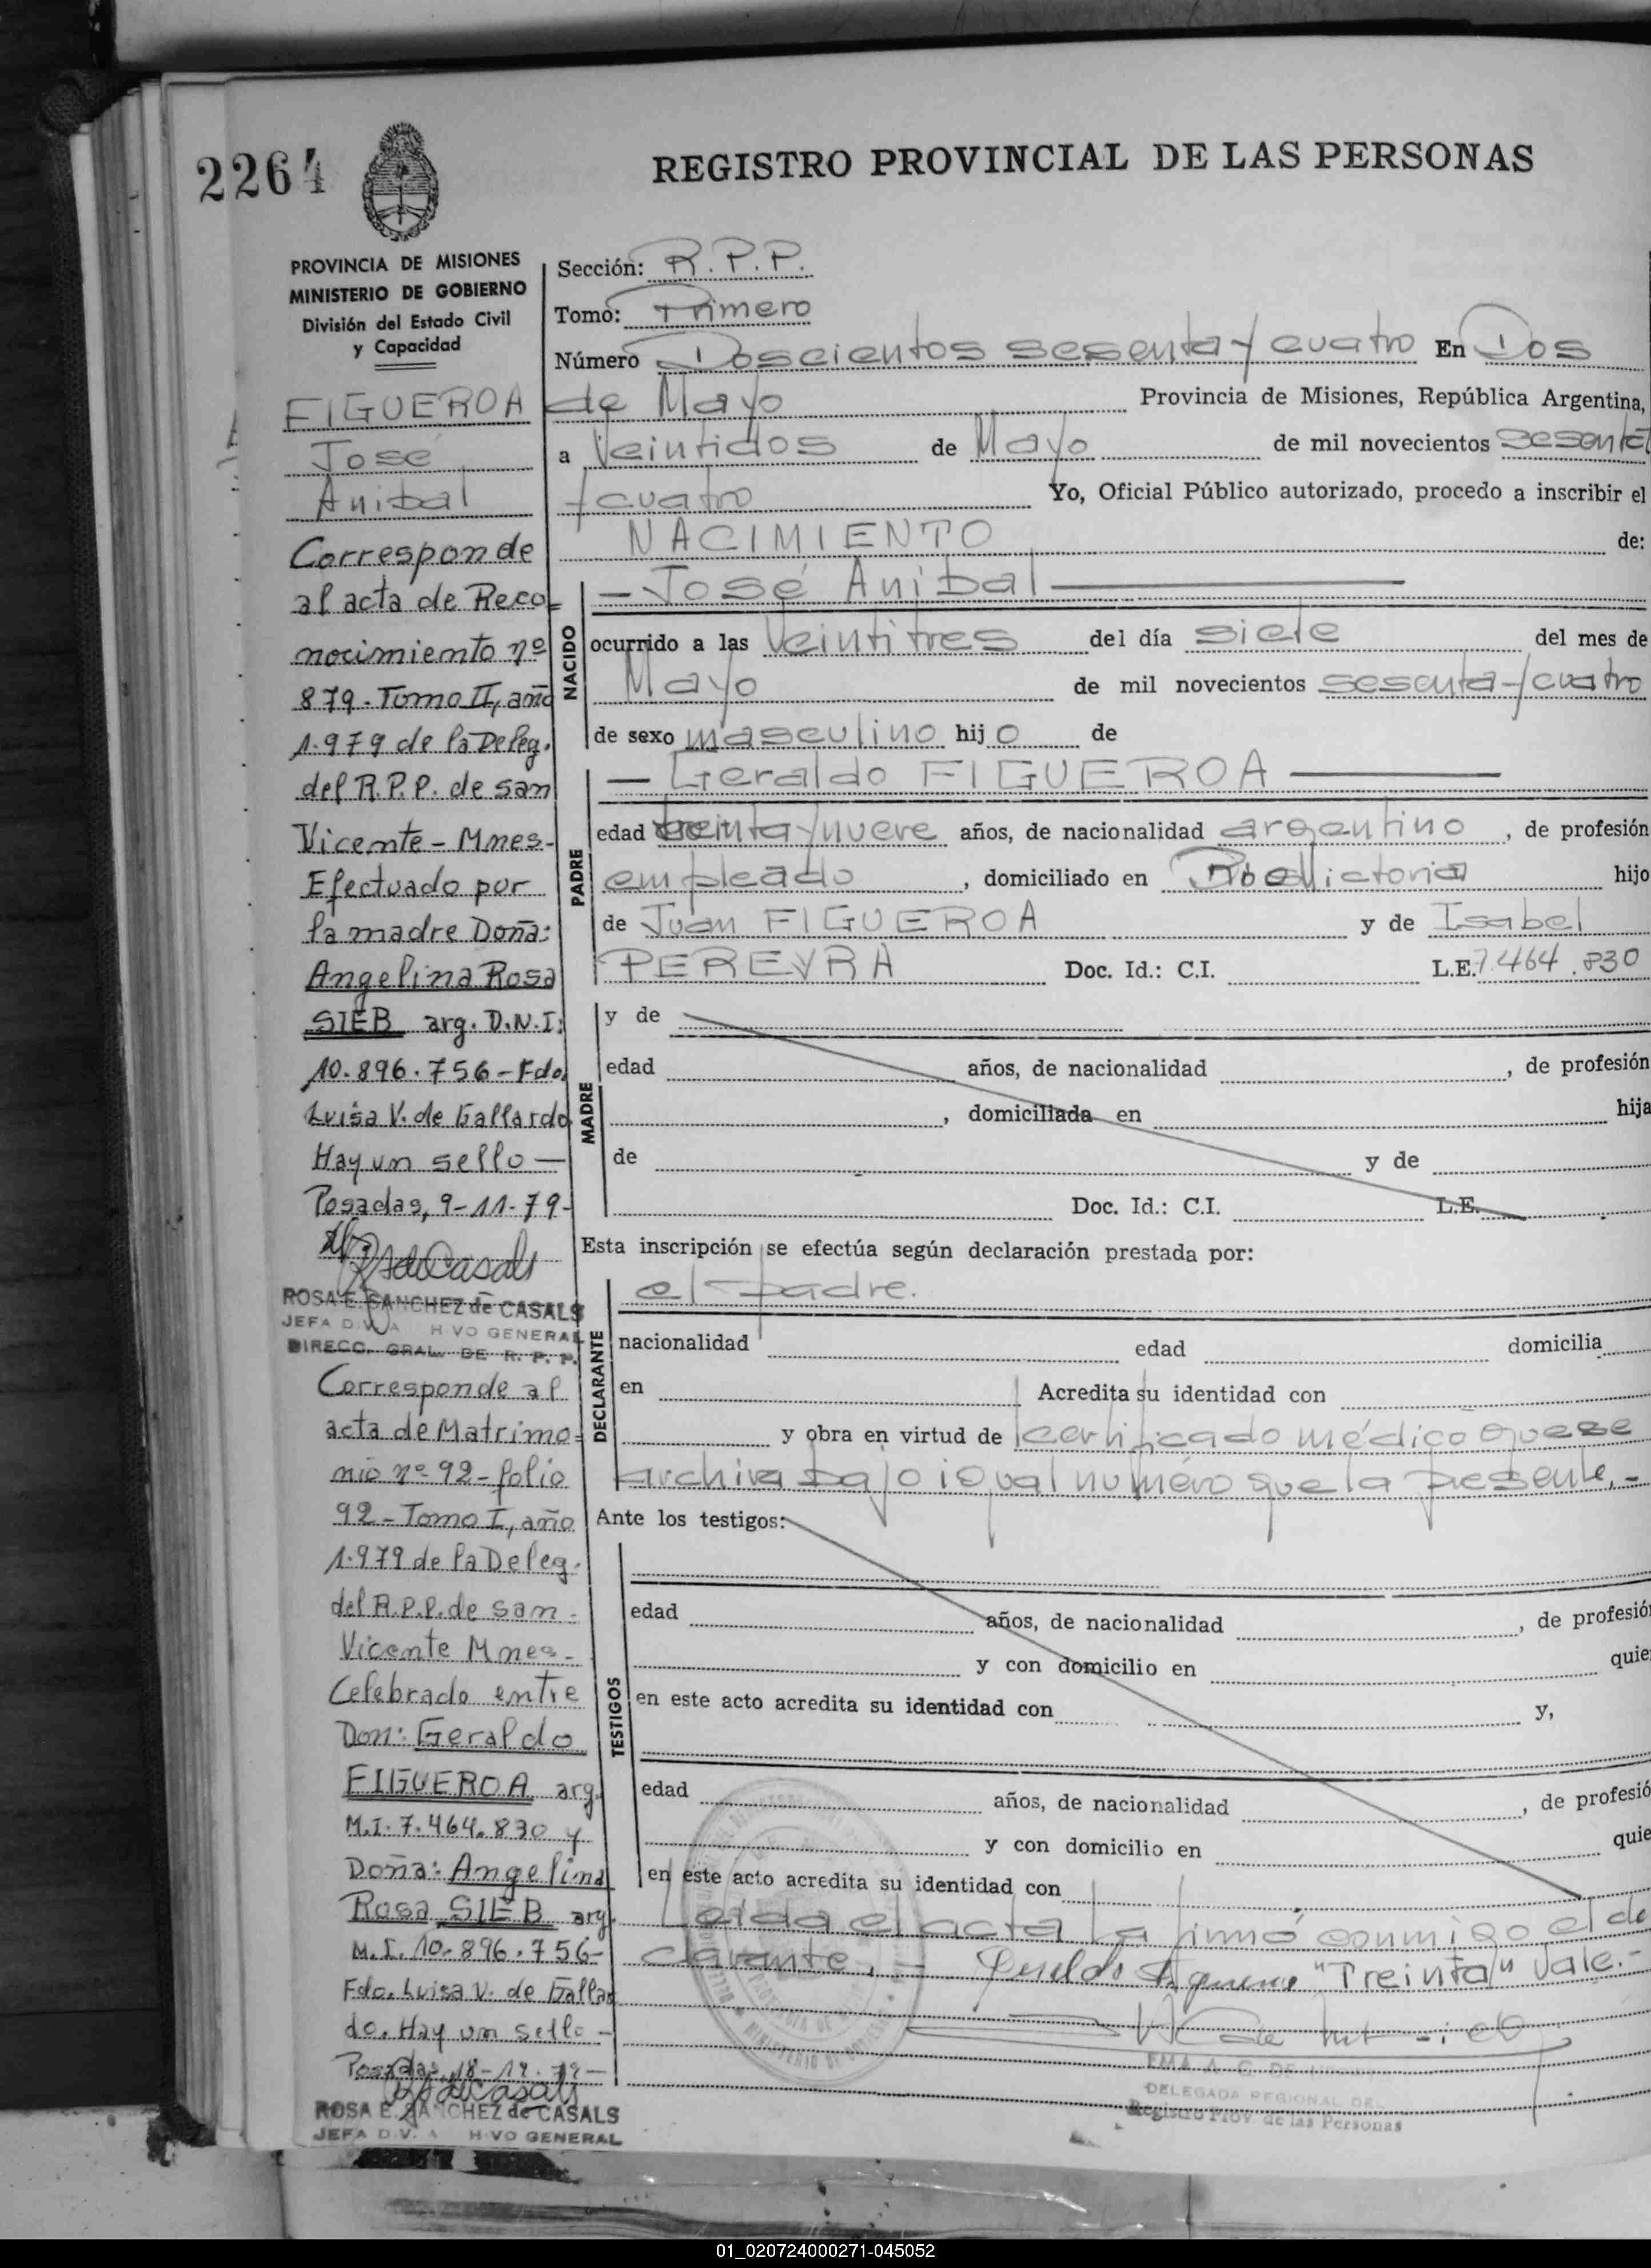 2264
REGISTRO PROVINCIAL DE LAS PERSONAS
PROVINCIA DE MISIONES
MINISTERIO DE GOBIERNO
División del Estado Civil
y Capacidad
FIGUEROA
José
Anibal
Corresponde
al acta de Reco=
nocimiento nº
879-Tomo II, año
1.979 de la Deleg.
del R.P.P. de san
Vicente - Mnes-
Efectuado por
la madre Doña:
Angelina Rosa
SIEB arg. D.N.I:
10.896.756-Fdo.
Luisa V. de Gallardo
Hay un sello —
Posadas, 9-11-79-
ROSA E. SANCHEZ de CASALS
JEFA DIV. A HIVO GENERAL
DIRECC. GRAL. DE R. P. P.
Corresponde al
acta de Matrimo=
nio nº 92-folio
92-Tomo I, año
1.979 de la Deleg.
del R.P.P. de san-
Vicente Mnes-
Celebrado entre
Don: Geraldo
FIGUEROA arg.
M.I. 7.464.830 y
Doña: Angelina
Rosa SIEB arg.
M.I. 10.896.756-
Fdo. Luisa V. de Gallar
do. Hay un sello -
Posadas, 18-12-79-
ROSA E. SANCHEZ de CASALS
JEFA DIV. A HIVO GENERAL
Sección: R.P.P.
Tomo: Primero
Número Doscientos sesenta y cuatro En Dos
de Mayo Provincia de Misiones, República Argentina,
a Veintidos de Mayo de mil novecientos sesenta
y cuatro Yo, Oficial Público autorizado, procedo a inscribir el
NACIMIENTO de:
NACIDO
— José Anibal —
ocurrido a las veintitres del día siete del mes de
Mayo de mil novecientos sesenta y cuatro
de sexo masculino hijo de
PADRE
— Geraldo FIGUEROA —
edad treinta y nueve años, de nacionalidad argentino, de profesión
empleado, domiciliado en Victoria hijo
de Juan FIGUEROA y de Isabel
PEREYRA Doc. Id.: C.I. L.E. 7.464.830
MADRE
y de
edad años, de nacionalidad , de profesión
, domiciliada en hija
de y de
Doc. Id.: C.I. L.E.
Esta inscripción se efectúa según declaración prestada por:
DECLARANTE
el padre.
nacionalidad edad domicilia
en Acredita su identidad con
y obra en virtud de certificado médico que se
archiva bajo igual numero que la presente.-
Ante los testigos:
TESTIGOS
edad años, de nacionalidad , de profesión
y con domicilio en quie
en este acto acredita su identidad con y,
edad años, de nacionalidad , de profesió
y con domicilio en quie
en este acto acredita su identidad con
Leida el acta la firmó conmigo el de
clarante.- Geraldo Figueroa "Treinta" Vale.-
DELEGADA REGIONAL DEL
Registro Prov. de las Personas
01_020724000271-045052